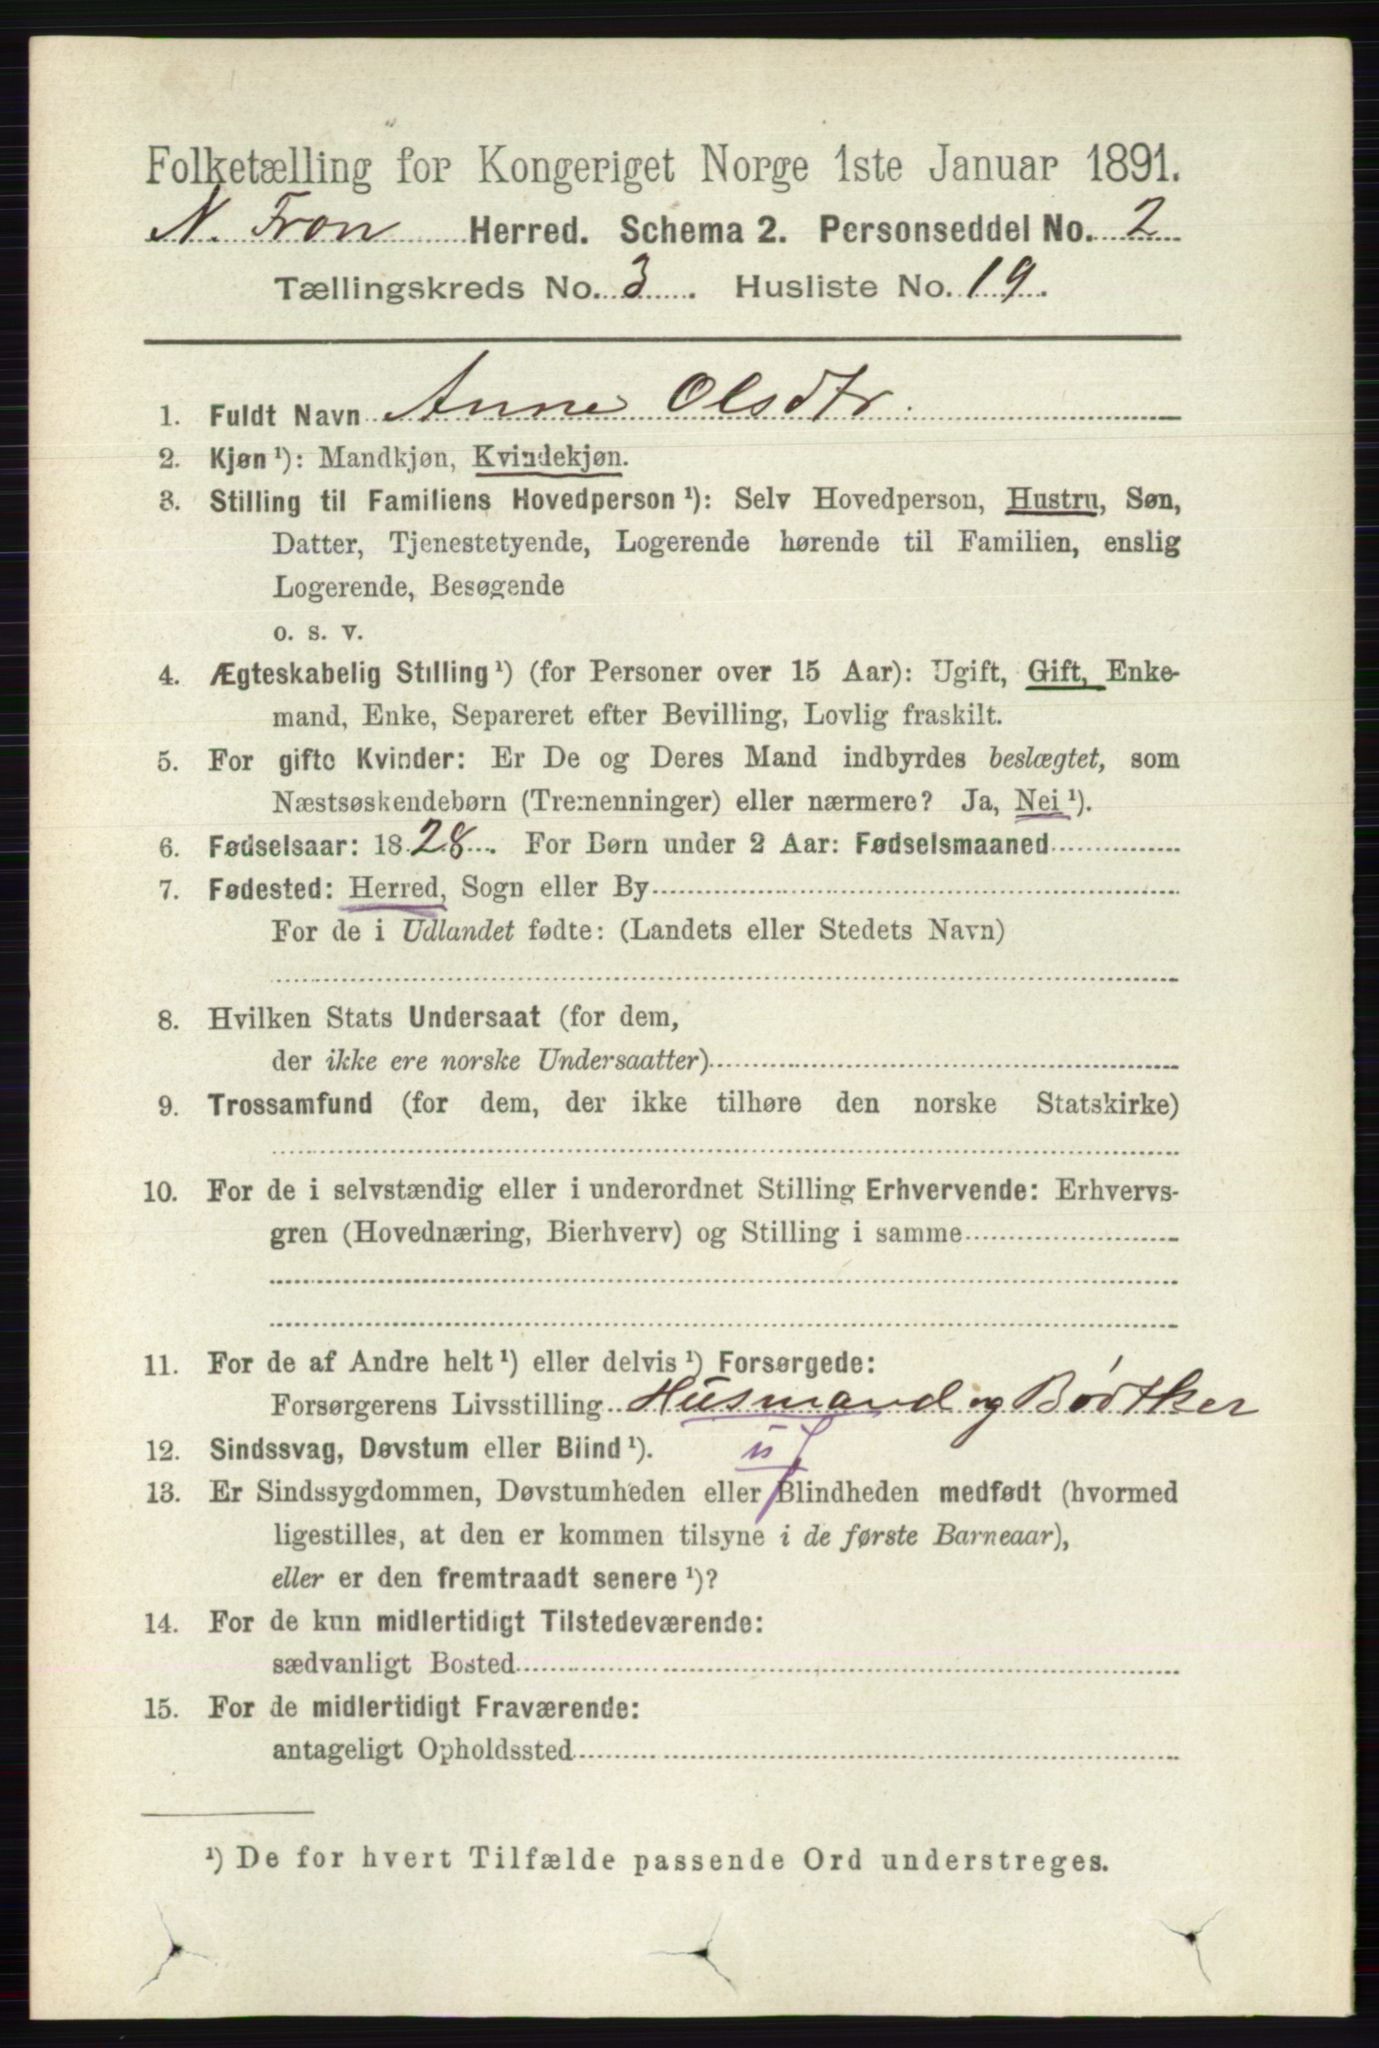 Folketælling for Kongeriget Norge 1ste Januar 1891.
N. Fron Herred. Schema 2. Personseddel No. 2
Tællingskreds No. 3. Husliste No. 19.
1. Fuldt Navn Anne Olsdtr.
2. Kjøn ¹): Mandkjøn, Kvindekjøn.
3. Stilling til Familiens Hovedperson ¹): Selv Hovedperson, Hustru, Søn,
Datter, Tjenestetyende, Logerende hørende til Familien, enslig
Logerende, Besøgende
o. s. v.
4. Ægteskabelig Stilling ¹) (for Personer over 15 Aar): Ugift, Gift, Enke-
mand, Enke, Separeret efter Bevilling, Lovlig fraskilt.
5. For gifte Kvinder: Er De og Deres Mand indbyrdes beslægtet, som
Næstsøskendebørn (Tremenninger) eller nærmere? Ja, Nei ¹).
6. Fødselsaar: 1828. For Børn under 2 Aar: Fødselsmaaned
7. Fødested: Herred, Sogn eller By
For de i Udlandet fødte: (Landets eller Stedets Navn)
8. Hvilken Stats Undersaat (for dem,
der ikke ere norske Undersaatter)
9. Trossamfund (for dem, der ikke tilhøre den norske Statskirke)
10. For de i selvstændig eller i underordnet Stilling Erhvervende: Erhvervs-
gren (Hovednæring, Bierhverv) og Stilling i samme
11. For de af Andre helt ¹) eller delvis ¹) Forsørgede:
Forsørgerens Livsstilling Husmand og Bødtker
12. Sindssvag, Døvstum eller Blind ¹).
13. Er Sindssygdommen, Døvstumheden eller Blindheden medfødt (hvormed
ligestilles, at den er kommen tilsyne i de første Barneaar),
eller er den fremtraadt senere ¹)?
14. For de kun midlertidigt Tilstedeværende:
sædvanligt Bosted
15. For de midlertidigt Fraværende:
antageligt Opholdssted
¹) De for hvert Tilfælde passende Ord understreges.